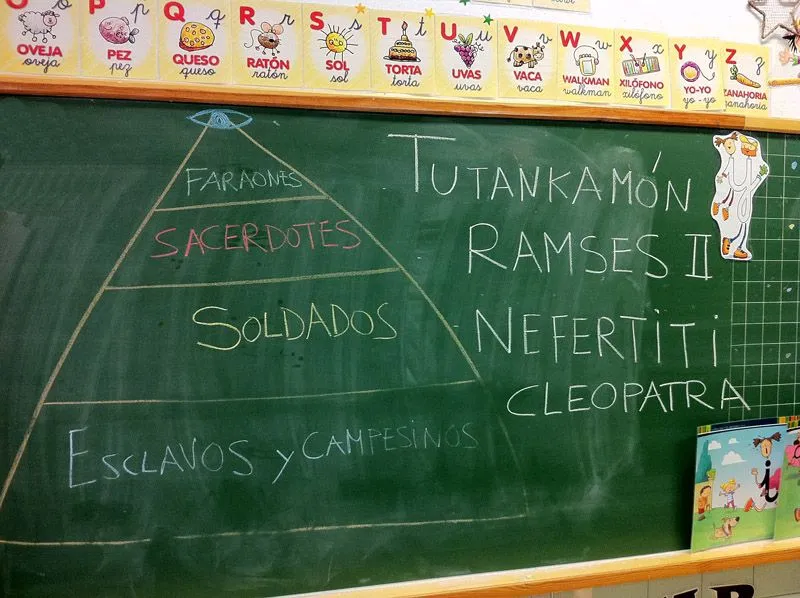 O o P p Q q R r S s T t U u V v W w X x Y y Z z
OVEJA PEZ QUESO RATÓN SOL TORTA UVAS VACA WALKMAN XILÓFONO YO-YO ZANAHORIA
oveja pez queso ratón sol torta uvas vaca walkman xilófono yo-yo zanahoria
FARAONES
SACERDOTES
SOLDADOS
ESCLAVOS y CAMPESINOS
TUTANKAMÓN
RAMSES II
NEFERTITI
CLEOPATRA
y
i